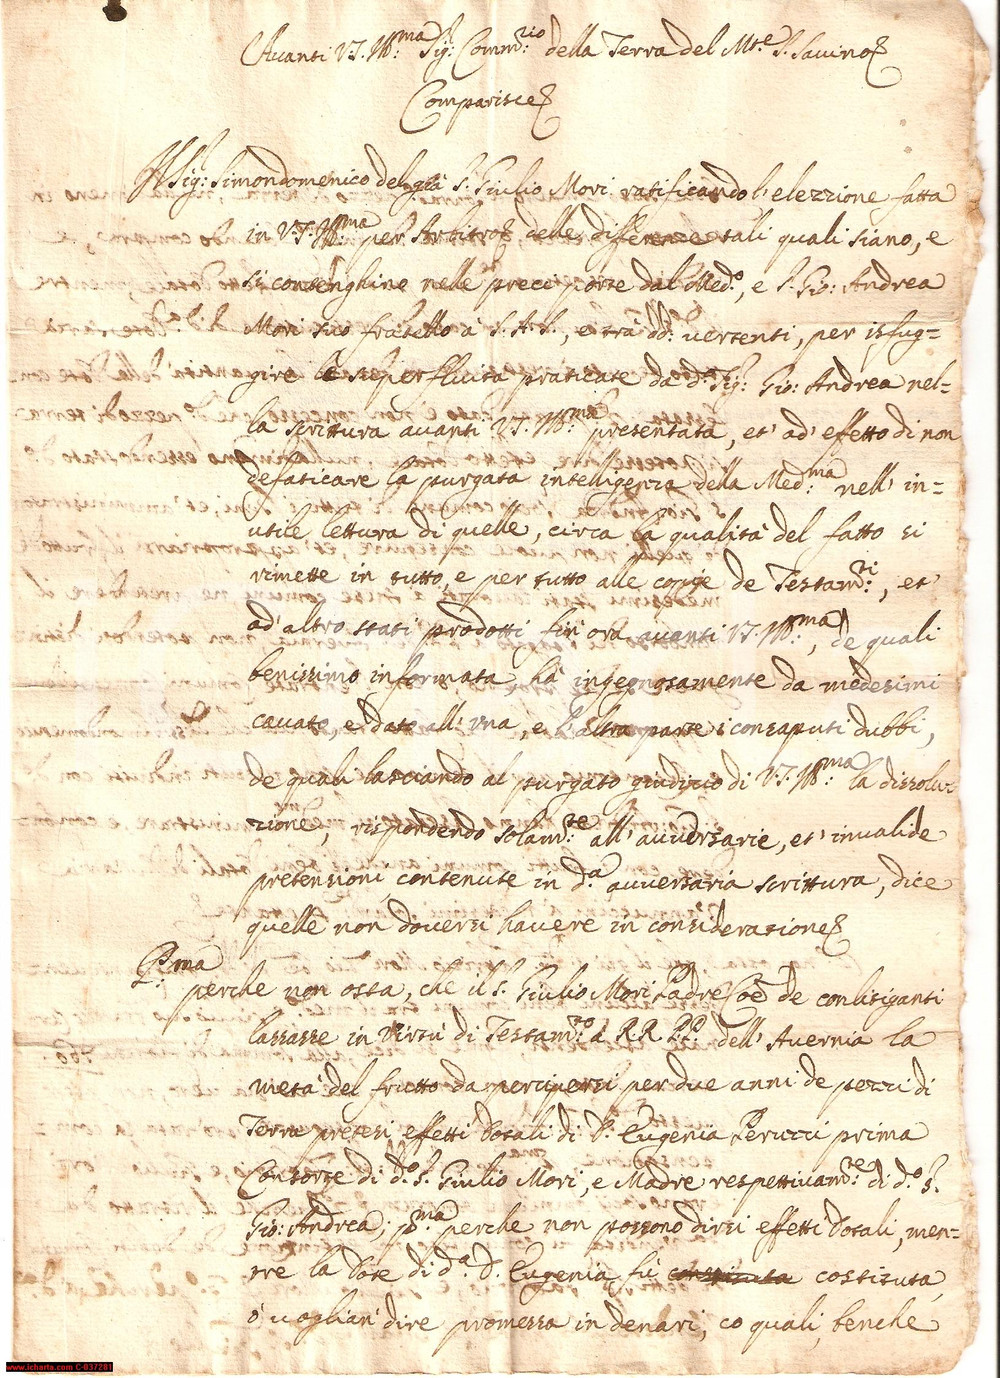 Avanti V.S. Ill:ma Sig: Comm:rio della Terra del Mte S. Savino
Comparisce
Il Sig: Simondomenico del già S. Giulio Mori ratificando l'elezzione fatta
in V.S. Ill:ma per Arbitro delle differenze tali quali siano, e
si contenghino nelle preci porte dal Med:o, e S. Gio: Andrea
Mori suo fratello à S.A.S., e trà dd: vertenti, per isfug=
gire le superfluità praticate da d:o Sig: Gio: Andrea nel=
la scrittura avanti V.S. Ill:ma presentata, et' ad' effetto di non
defaticare la purgata intelligenza della Med:ma nell' in=
utile lettura di quelle, circa la qualità del fatto si
rimette in tutto, e per tutto alle copie de Testam:ti, et'
ad' altro stati prodotti fin' ora avanti V.S. Ill:ma, de quali
benissimo informata hà ingegnosamente da medesimi
cavato, e dato all' una, e l' altra parte i consaputi dubbi,
de quali lasciando al purgato giudizio di V.S. Ill:ma la dissolu=
zione, rispondendo solam:te all' avversarie, et' invalide
pretensioni contenute in d:a avversaria scrittura, dice
quelle non doversi havere in considerazione
P:ma perche non osta, che il S. Giulio Mori Padre Coe de conlitiganti
lassasse in virtù di Testam:to à R.R. P.P. dell' Avernia la
metà del frutto da percipersi per due anni de pezzi di
Terra pretesi effetti dotali di S. Eugenia Perucci prima
Consorte di d:o S. Giulio Mori, e Madre respettivam:te di d:o S.
Gio: Andrea; p:ma perche non possono dirsi effetti dotali, men=
tre la Dote di d:a S. Eugenia fù costituta,
ò vogliam' dire promessa in denari, co quali, benche
www.icharta.com C-037281